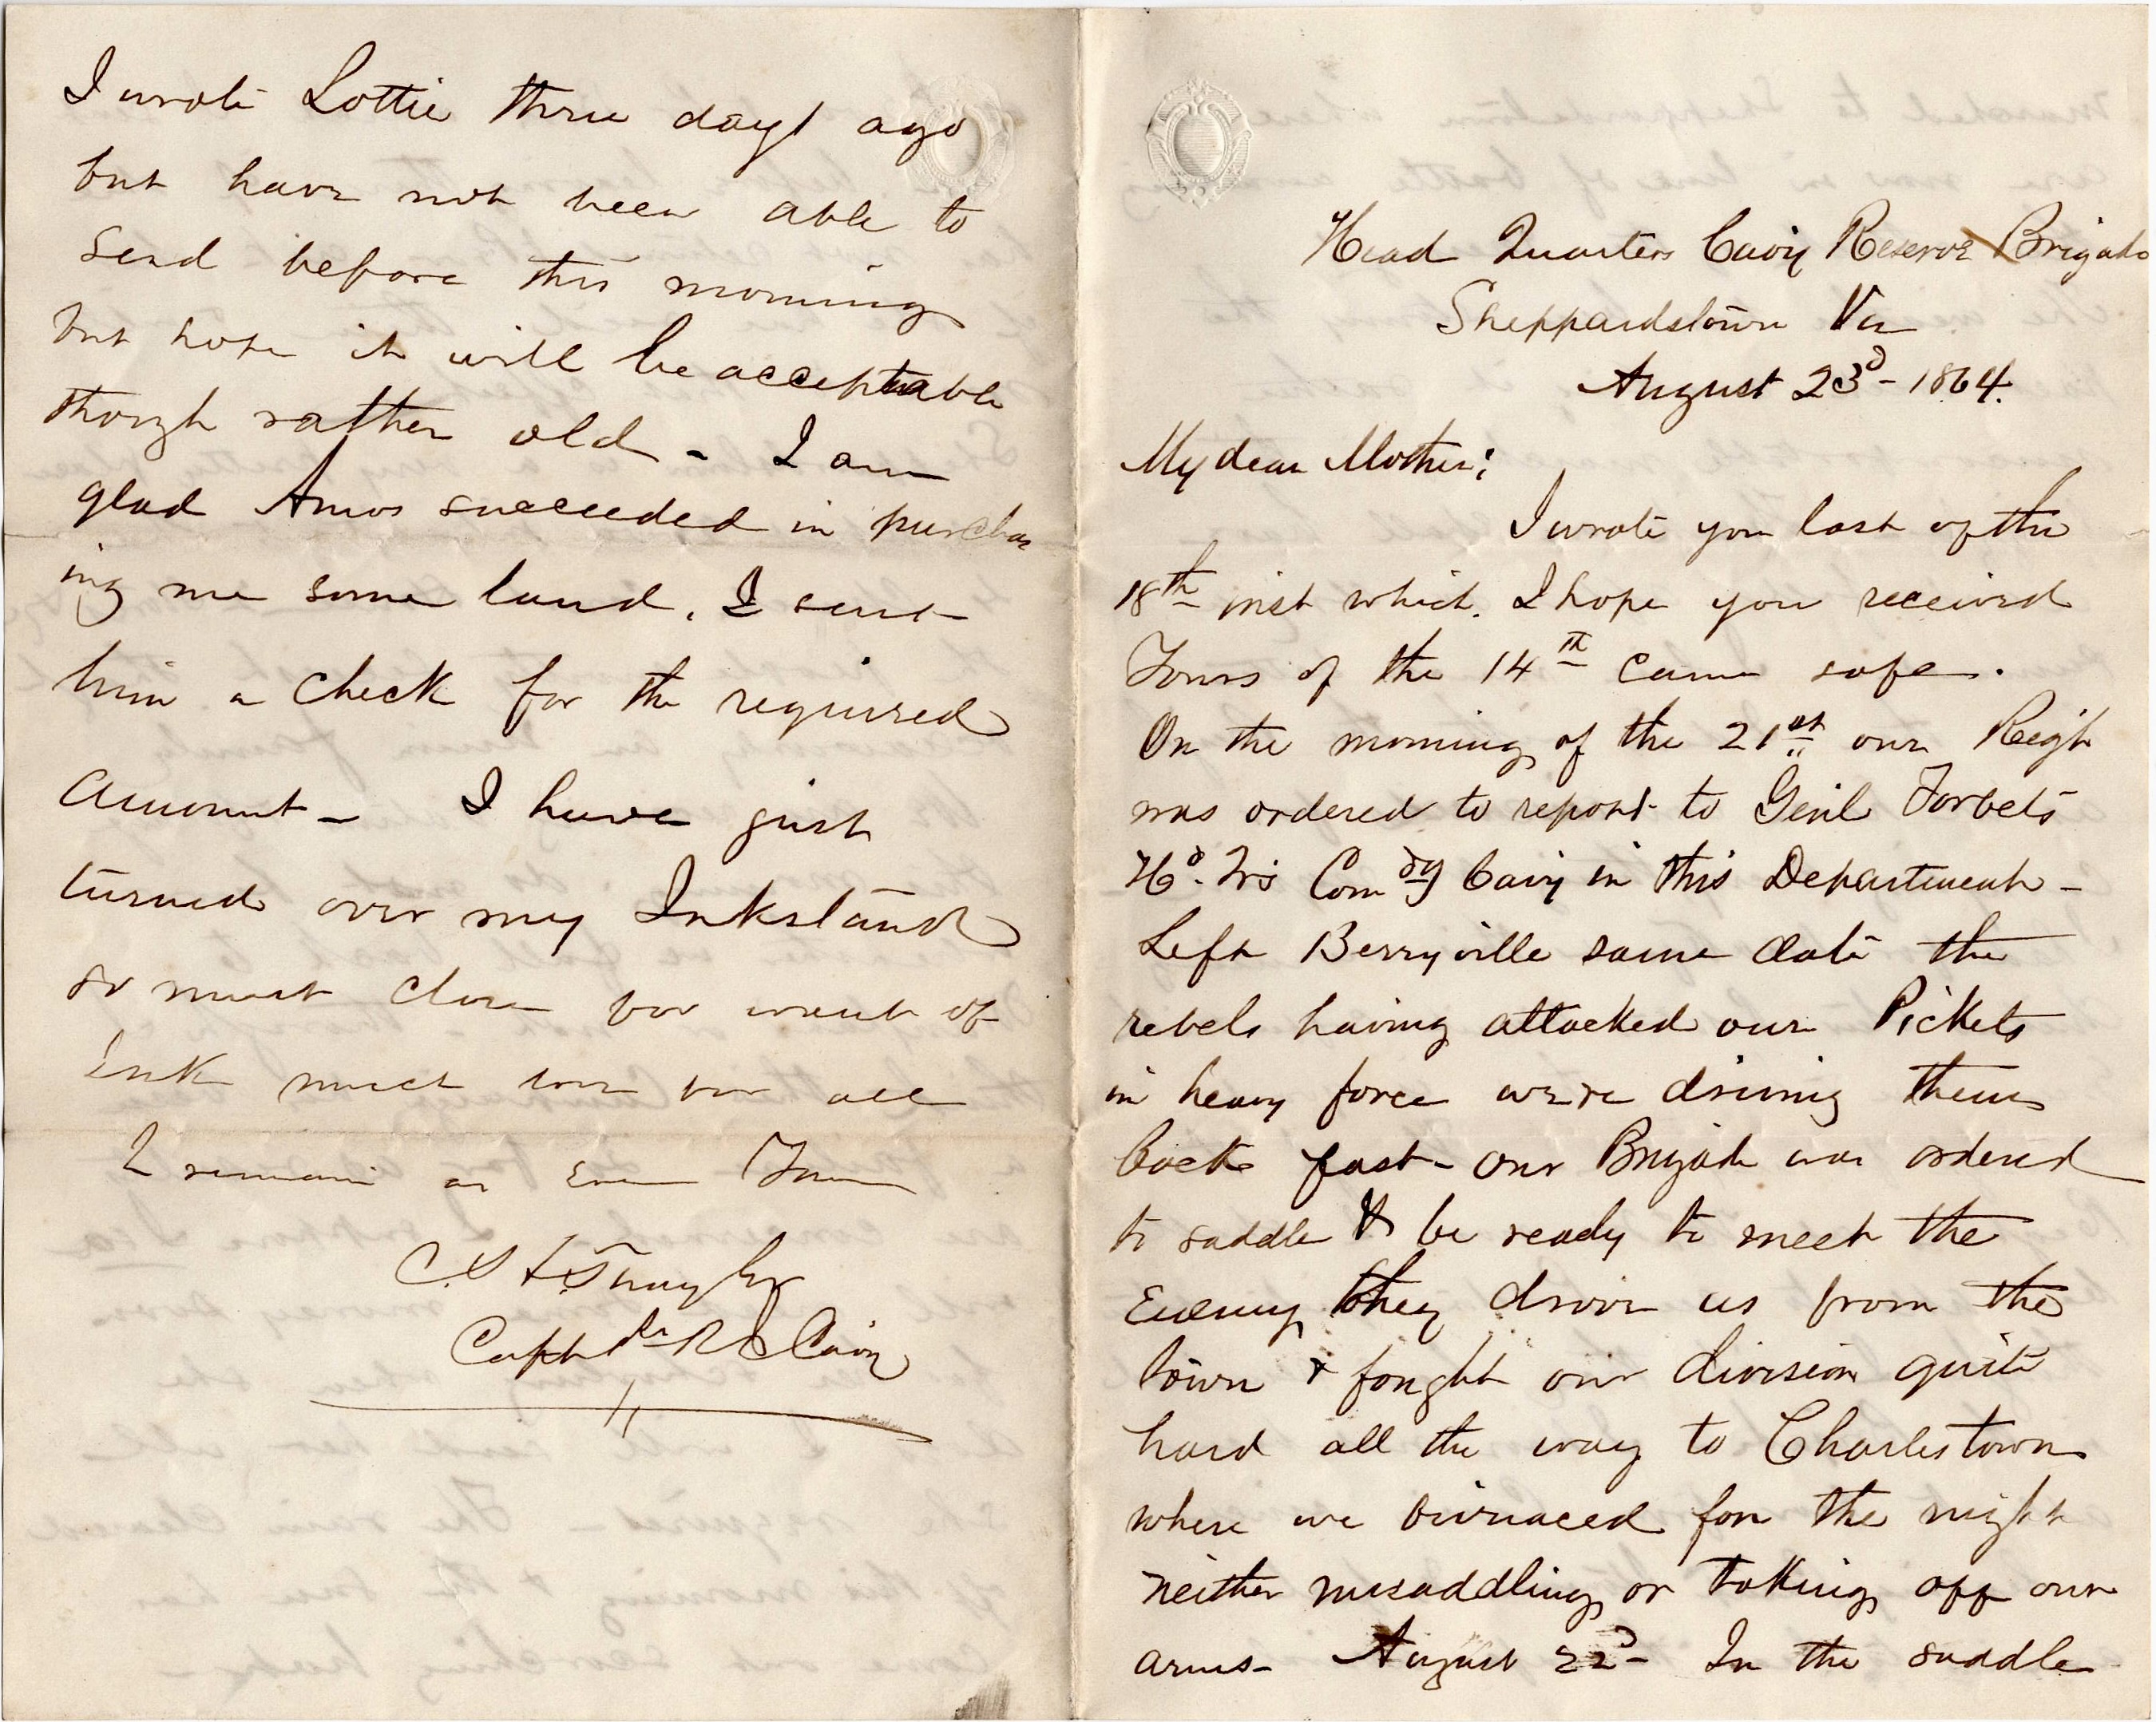 I wrote Lottie three days ago
but have not been able to
send before this morning
but hope it will be acceptable
though rather old - I am
glad Amos succeeded in purchas
ing me some land. I sent
him a check for the required
amount - I have just
turned over my Inkstand
so must close for want of
Ink much love for all
I remain as Ever Yours
Capt R I Cavy
Head Quarters Cavy Reserve Brigade
Sheppardstown Va
August 23d - 1864.
My dear Mother;
I wrote you last of the
18th inst which. I hope you received
Yours of the 14th came safe.
On the morning of the 21st our Regt
was ordered to report to Genl Torbets
Hd. Qrs Comdg Cavy in this Department -
Left Berryville same date the
rebels having attacked our Pickets
in heavy force were driving them
back fast - our Brigade was ordered
to saddle & be ready to meet the
Enemy they drove us from the
town & fought our division quite
hard all the way to Charlestown
where we bivuaced for the night
neither unsaddling or taking off our
arms - August 22d - In the saddle